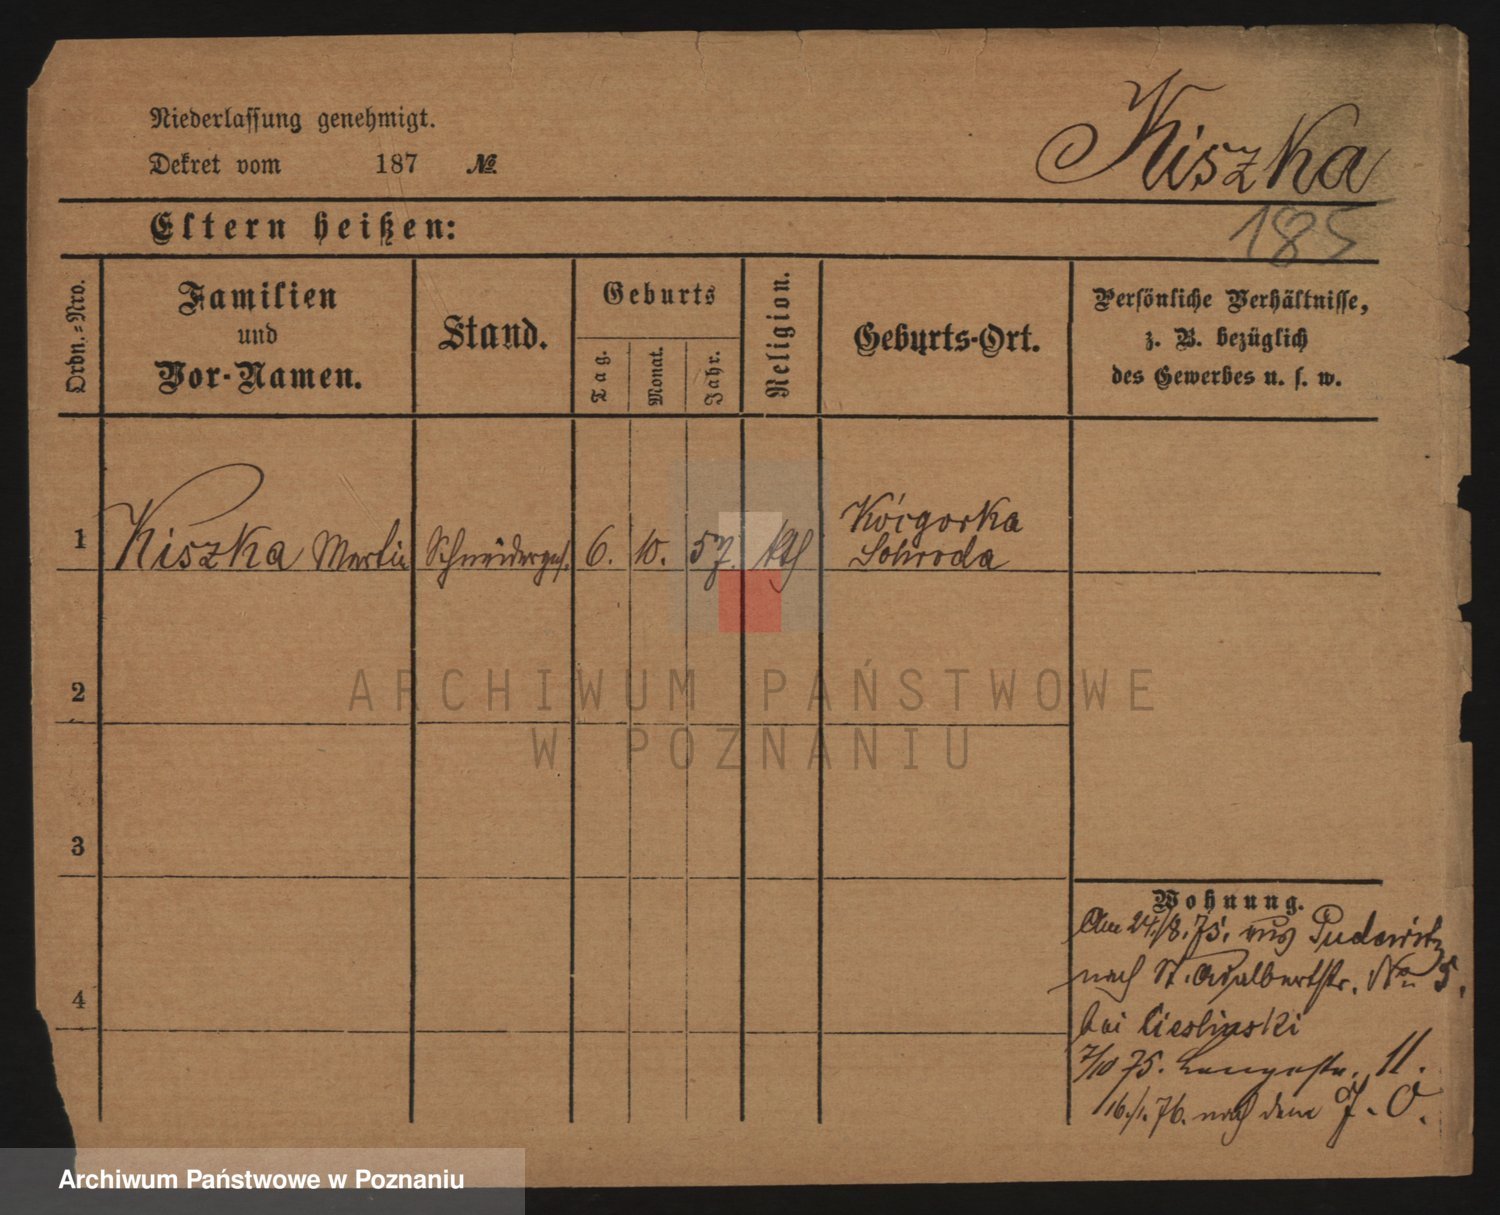 Niederlassung genehmigt.
Dekret vom 187 №
Kiszka
185
Eltern heißen:
Ordn.-Nro.
Familien
und
Vor-Namen.
Stand.
Geburts
Tag.
Monat.
Jahr.
Religion.
Geburts-Ort.
Persönliche Verhältnisse,
z. B. bezüglich
des Gewerbes u. s. w.
1 Kiszka Martin Schneiderges. 6. 10. 57. kth Kócgorka
Schroda
2
3
4
Wohnung.
Am 24./8. 75. aus Pudewitz
nach St. Adalbertstr. No 5.
bei Cieslinski
7/10 75. Langestr. 11.
16./1. 76. nach dem J. O.
ARCHIWUM PAŃSTWOWE
W POZNANIU
Archiwum Państwowe w Poznaniu